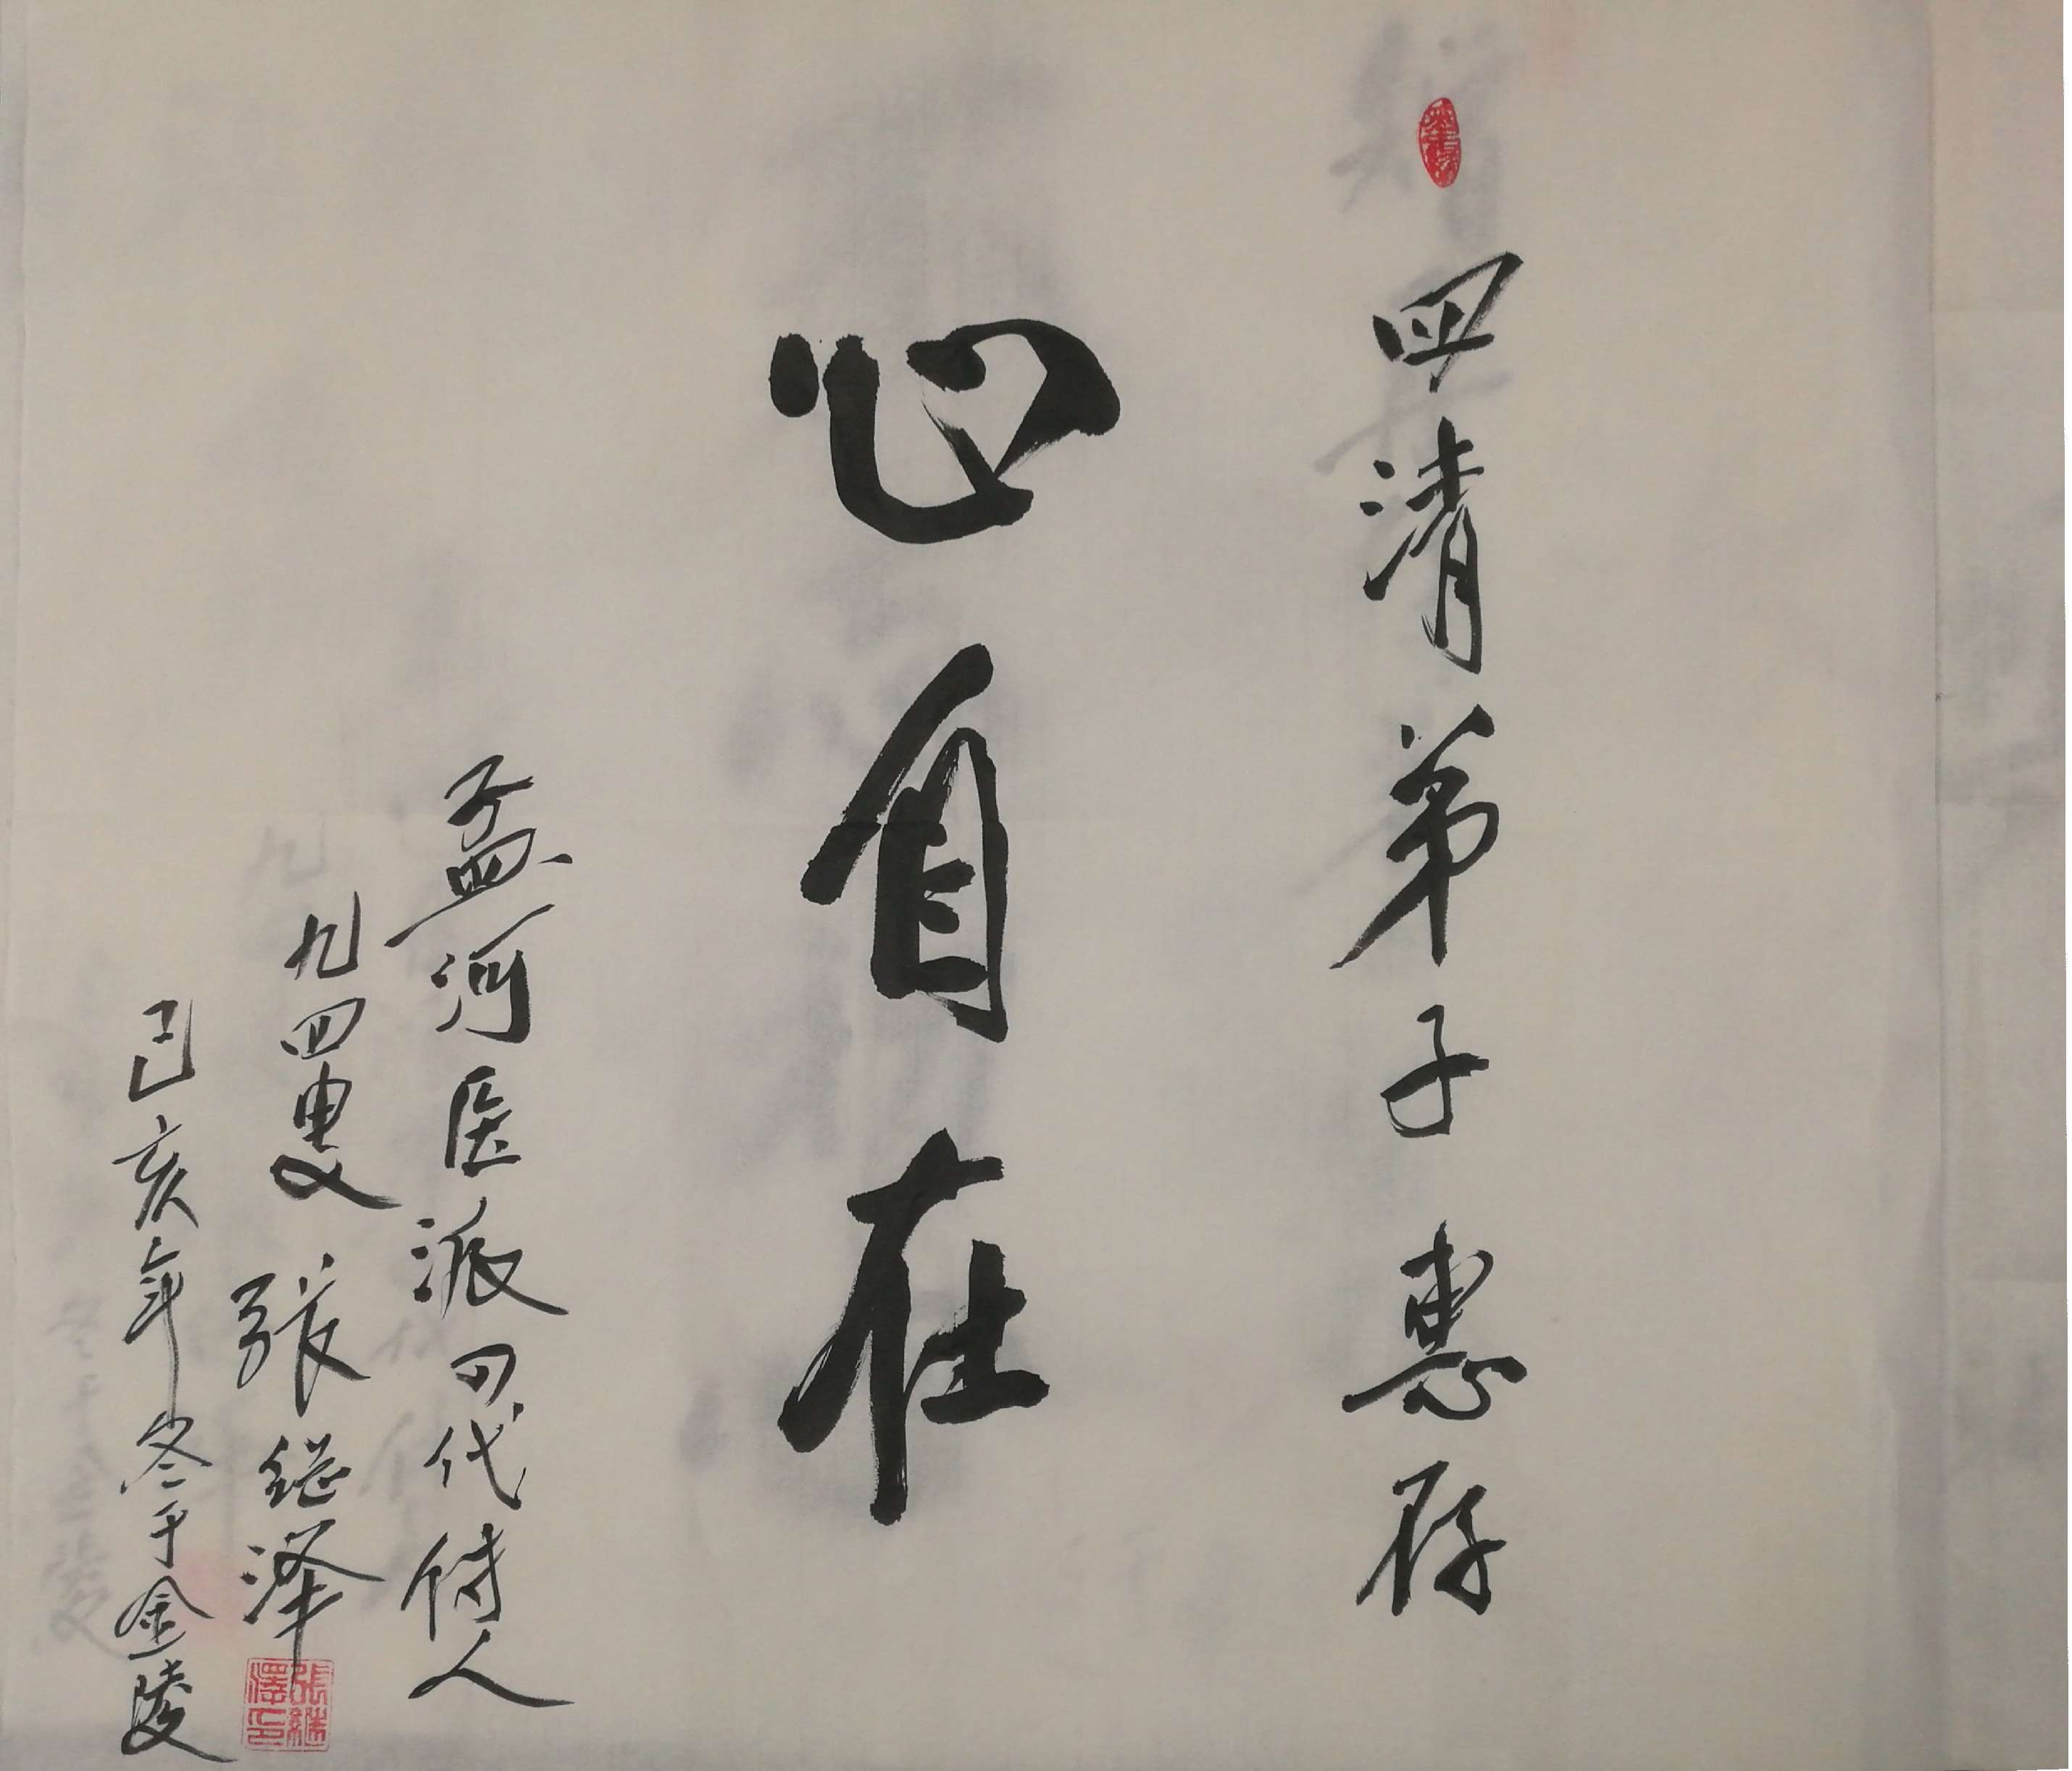 四清弟子惠存
心自在
孟河医派四代传人
九四叟 張继泽
己亥年冬于金陵
張継澤印